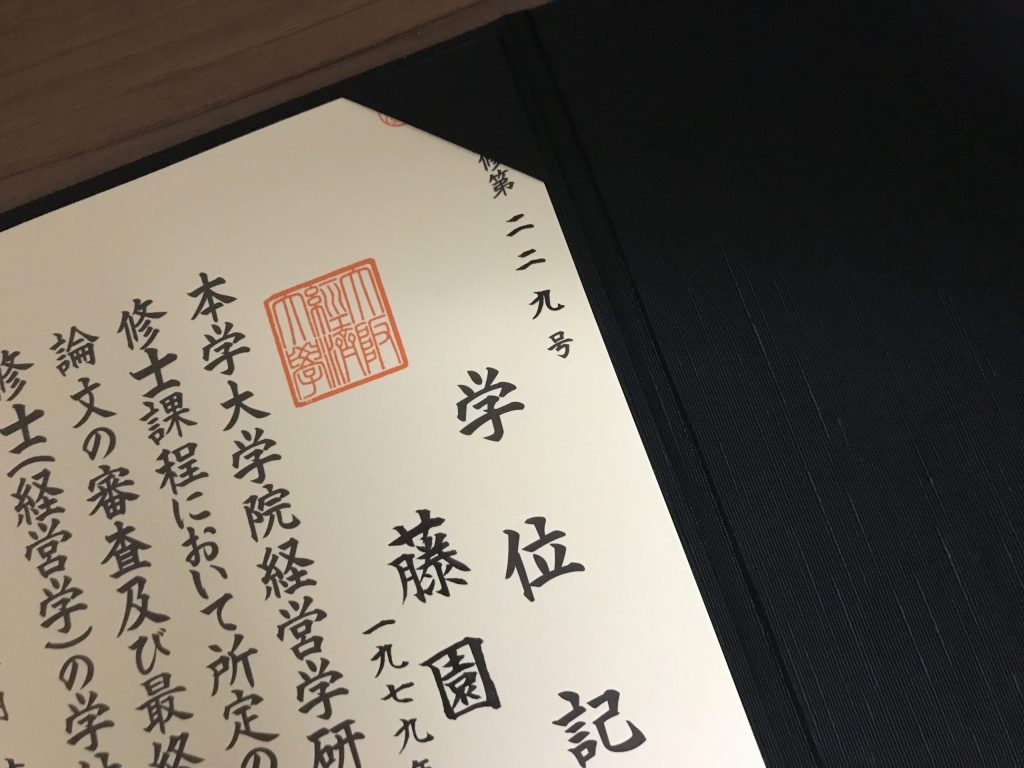 修第二二九号
学位記
藤園
一九七九年
大阪經濟大學
本学大学院経営学研
修士課程において所定の
論文の審査及び最終
修士(経営学)の学